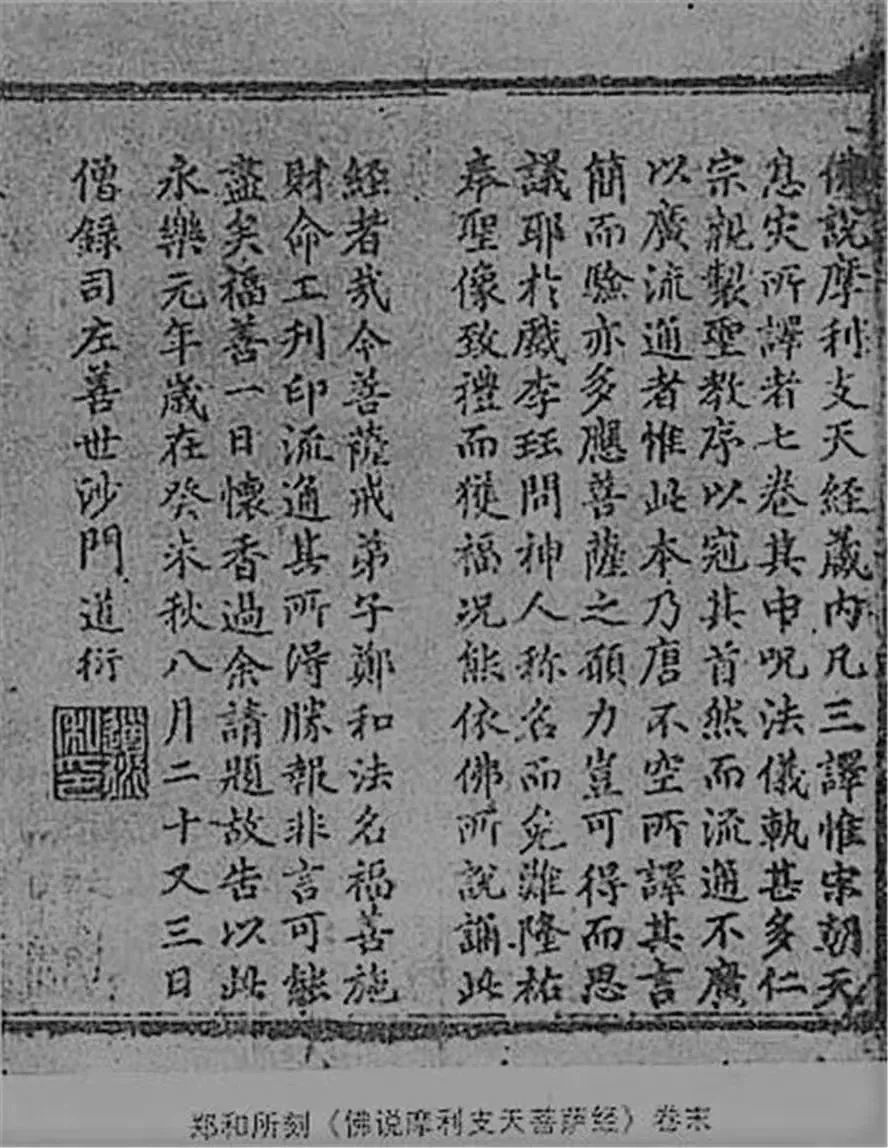 佛說摩利支天經藏內凡三譯惟宋朝天
息災所譯者七卷其中呪法儀軌甚多仁
宗親製聖教序以冠其首然而流通不廣
以廣流通者惟此本乃唐不空所譯其言
簡而驗亦多應菩薩之願力豈可得而思
議耶於戲李珏問神人称名而免難隆祐
奉聖像致禮而獲福况能依佛所說誦此
經者哉今菩薩戒弟子鄭和法名福善施
財命工刊印流通其所得勝報非言可能
盡矣福善一日懷香過余請題故告以此
永樂元年歲在癸未秋八月二十又三日
僧錄司左善世沙門道衍
郑和所刻《佛说摩利支天菩萨经》卷末